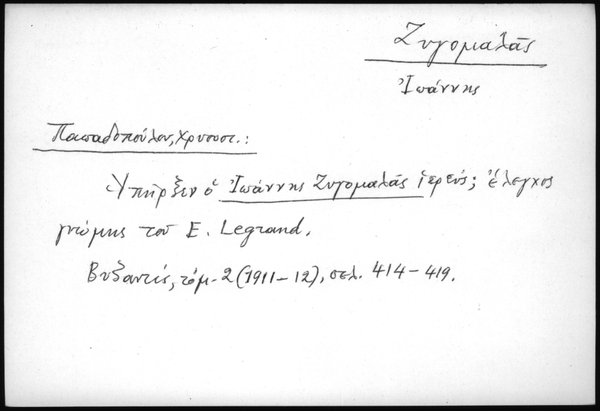 Ζυγομαλᾶς
Ἰωάννης
Παπαδοπούλου, Χρυσοστ.:
Ὑπῆρξεν ὁ Ἰωάννης Ζυγομαλᾶς ἱερεύς; ἔλεγχος
γνώμης τοῦ E. Legrand.
Βυζαντίς, τόμ. 2 (1911-12), σελ. 414-419.